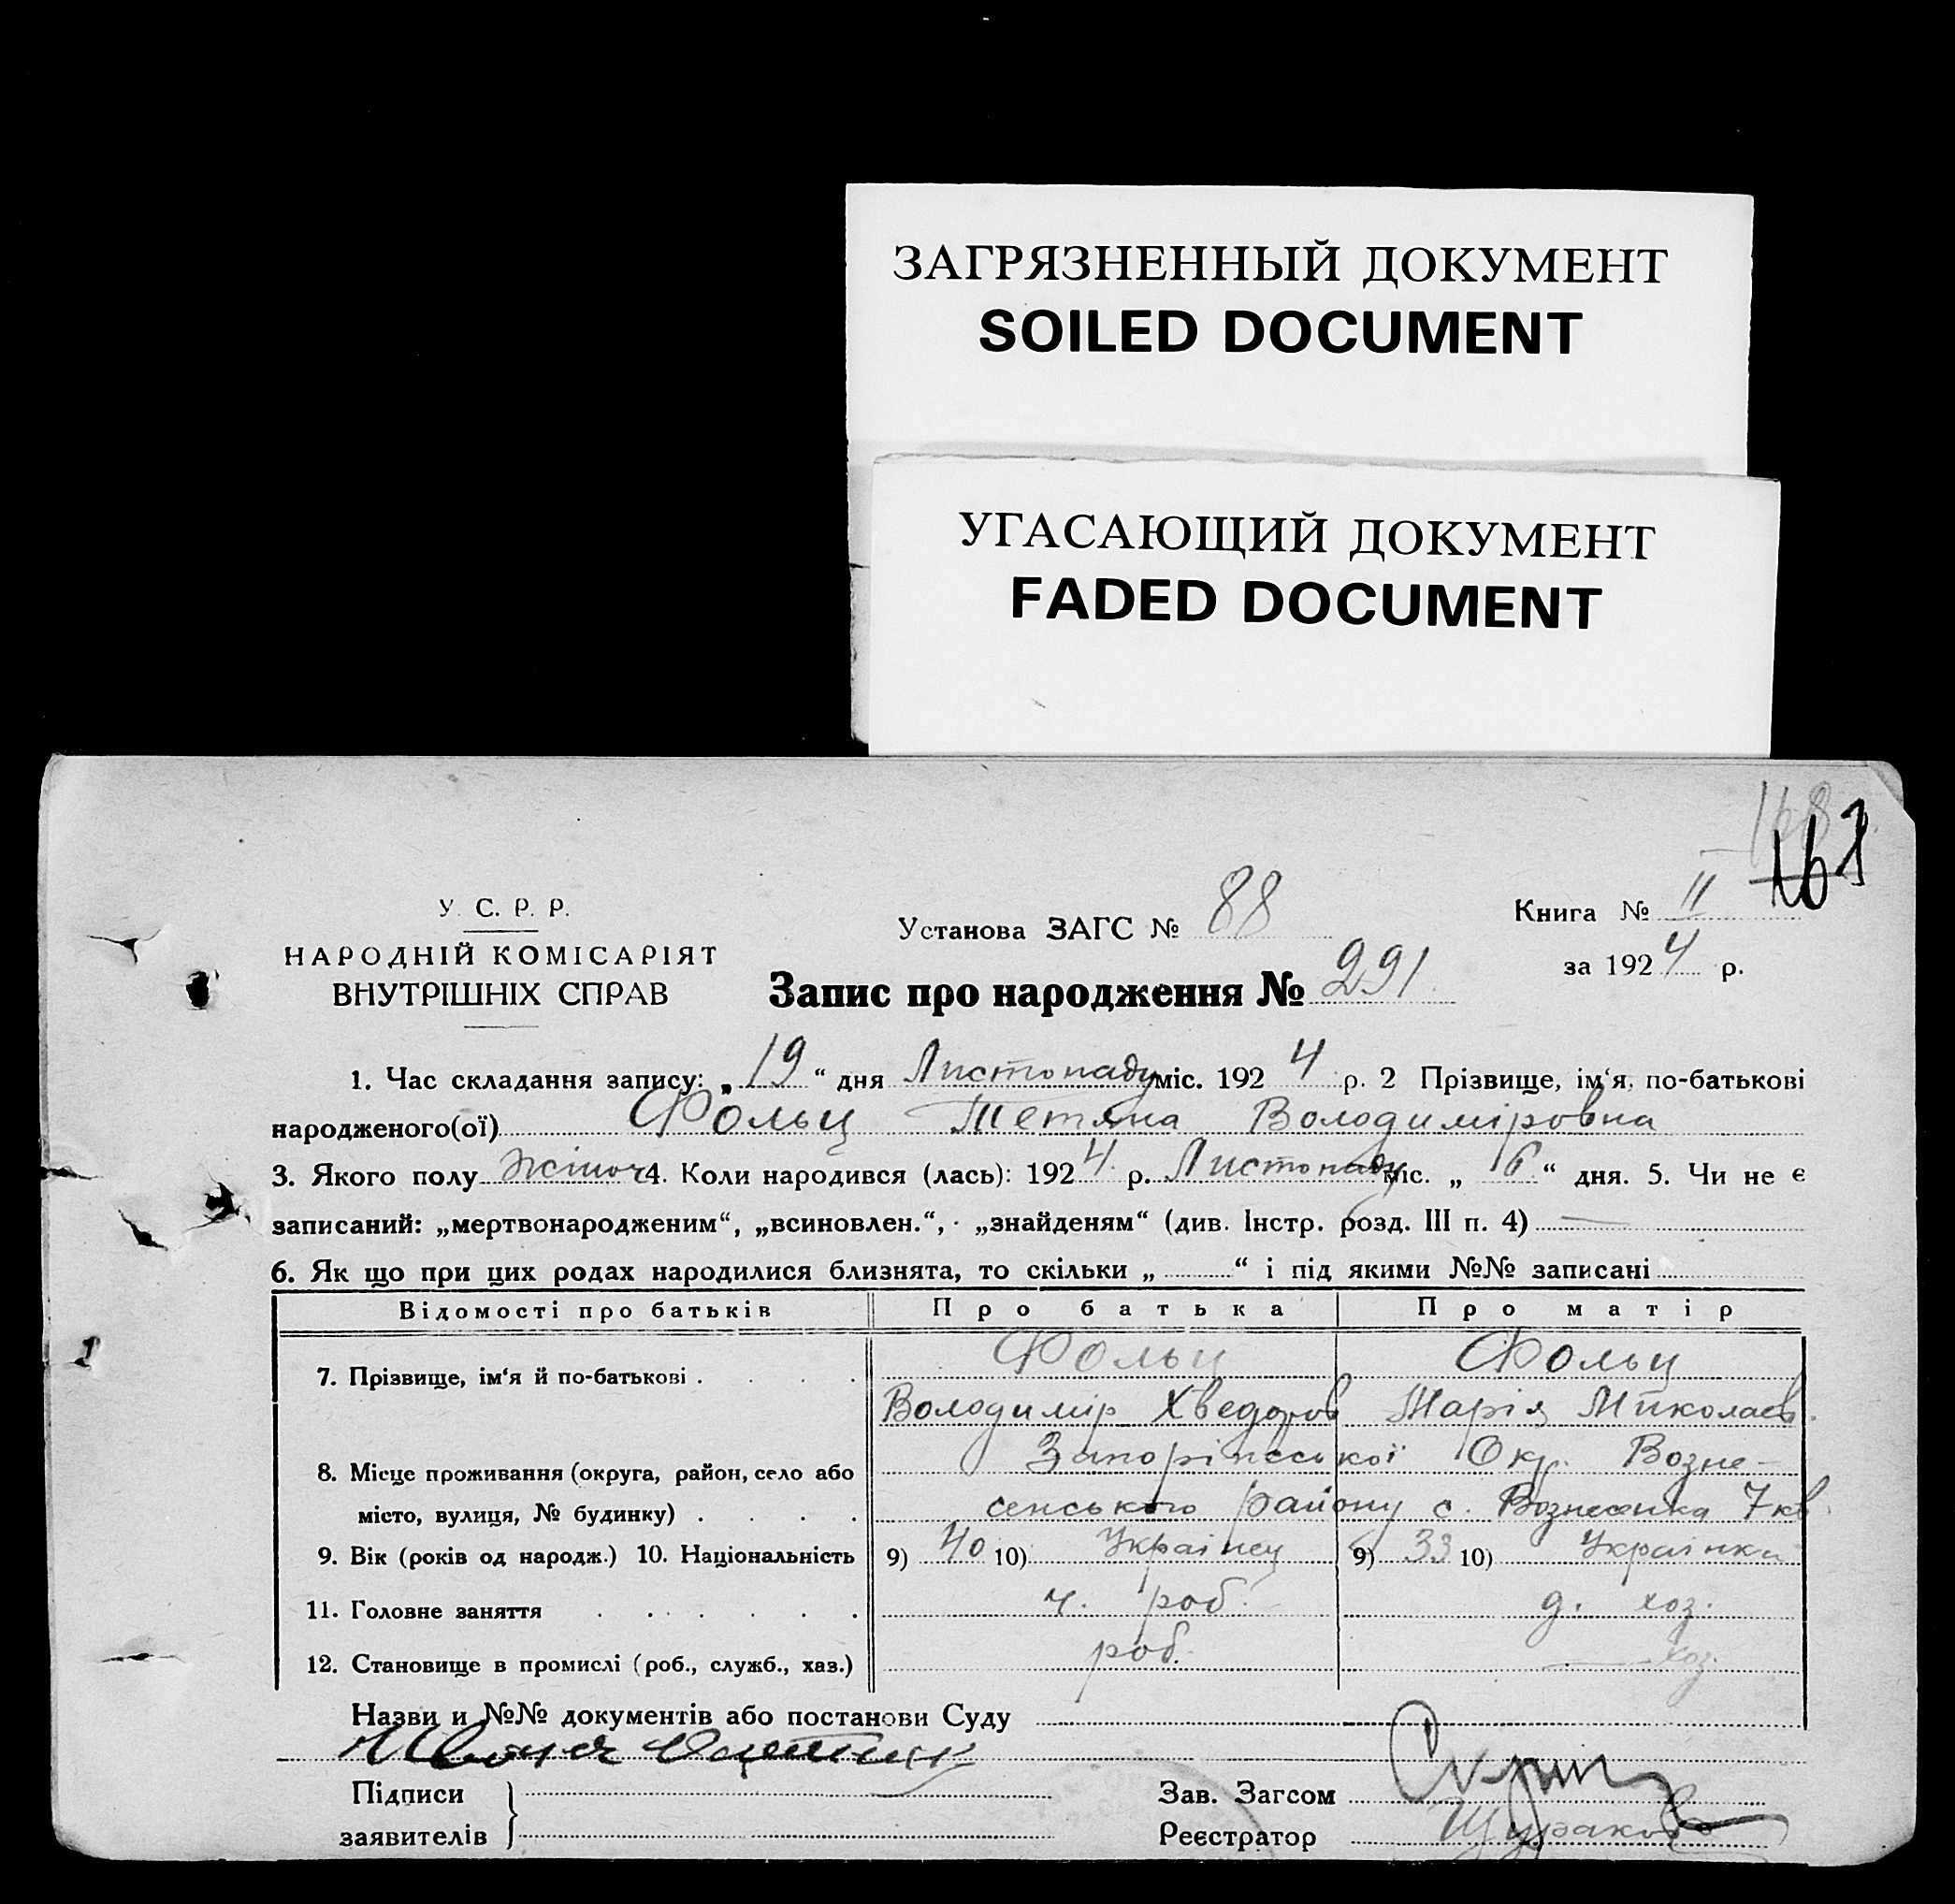 ЗАГРЯЗНЕННЫЙ ДОКУМЕНТ
SOILED DOCUMENT
УГАСАЮЩИЙ ДОКУМЕНТ
FADED DOCUMENT
168
У. С. Р. Р.
НАРОДНІЙ КОМІСАРІЯТ
ВНУТРІШНІХ СПРАВ
Установа ЗАГС № 88
Книга № II
за 1924 р.
Запис про народження № 291
1. Час складання запису: „19“ дня Листопаду міс. 1924 р. 2 Прізвище, ім‘я, по-батькові
народженого(ої) Фольц Тетяна Володиміровна
3. Якого полу жіноч 4. Коли народився (лась): 1924 р. Листопаду міс. „6“ дня. 5. Чи не є
записаний: „мертвонародженим“, „всиновлен.“, „знайденям“ (див. Інстр. розд. III п. 4) —
6. Як що при цих родах народилися близнята, то скільки „ “ і під якими №№ записані
Відомості про батьків Про батька Про матір
7. Прізвище, ім‘я й по-батькові Фольц Фольц
Володимір Хведоров Марія Миколаев.
8. Місце проживання (округа, район, село або Запоріжської Окр. Возне-
місто, вулиця, № будинку) сенського району с. Вознесенка 7 кв.
9. Вік (років од народж.) 10. Національність 9) 40 10) Українец 9) 33 10) Українка
11. Головне заняття ч. роб. д. хоз.
12. Становище в промислі (роб., служб., хаз.) роб. — хоз.
Назви и №№ документів або постанови Суду
Підписи
заявителів
Зав. Загсом
Реєстратор